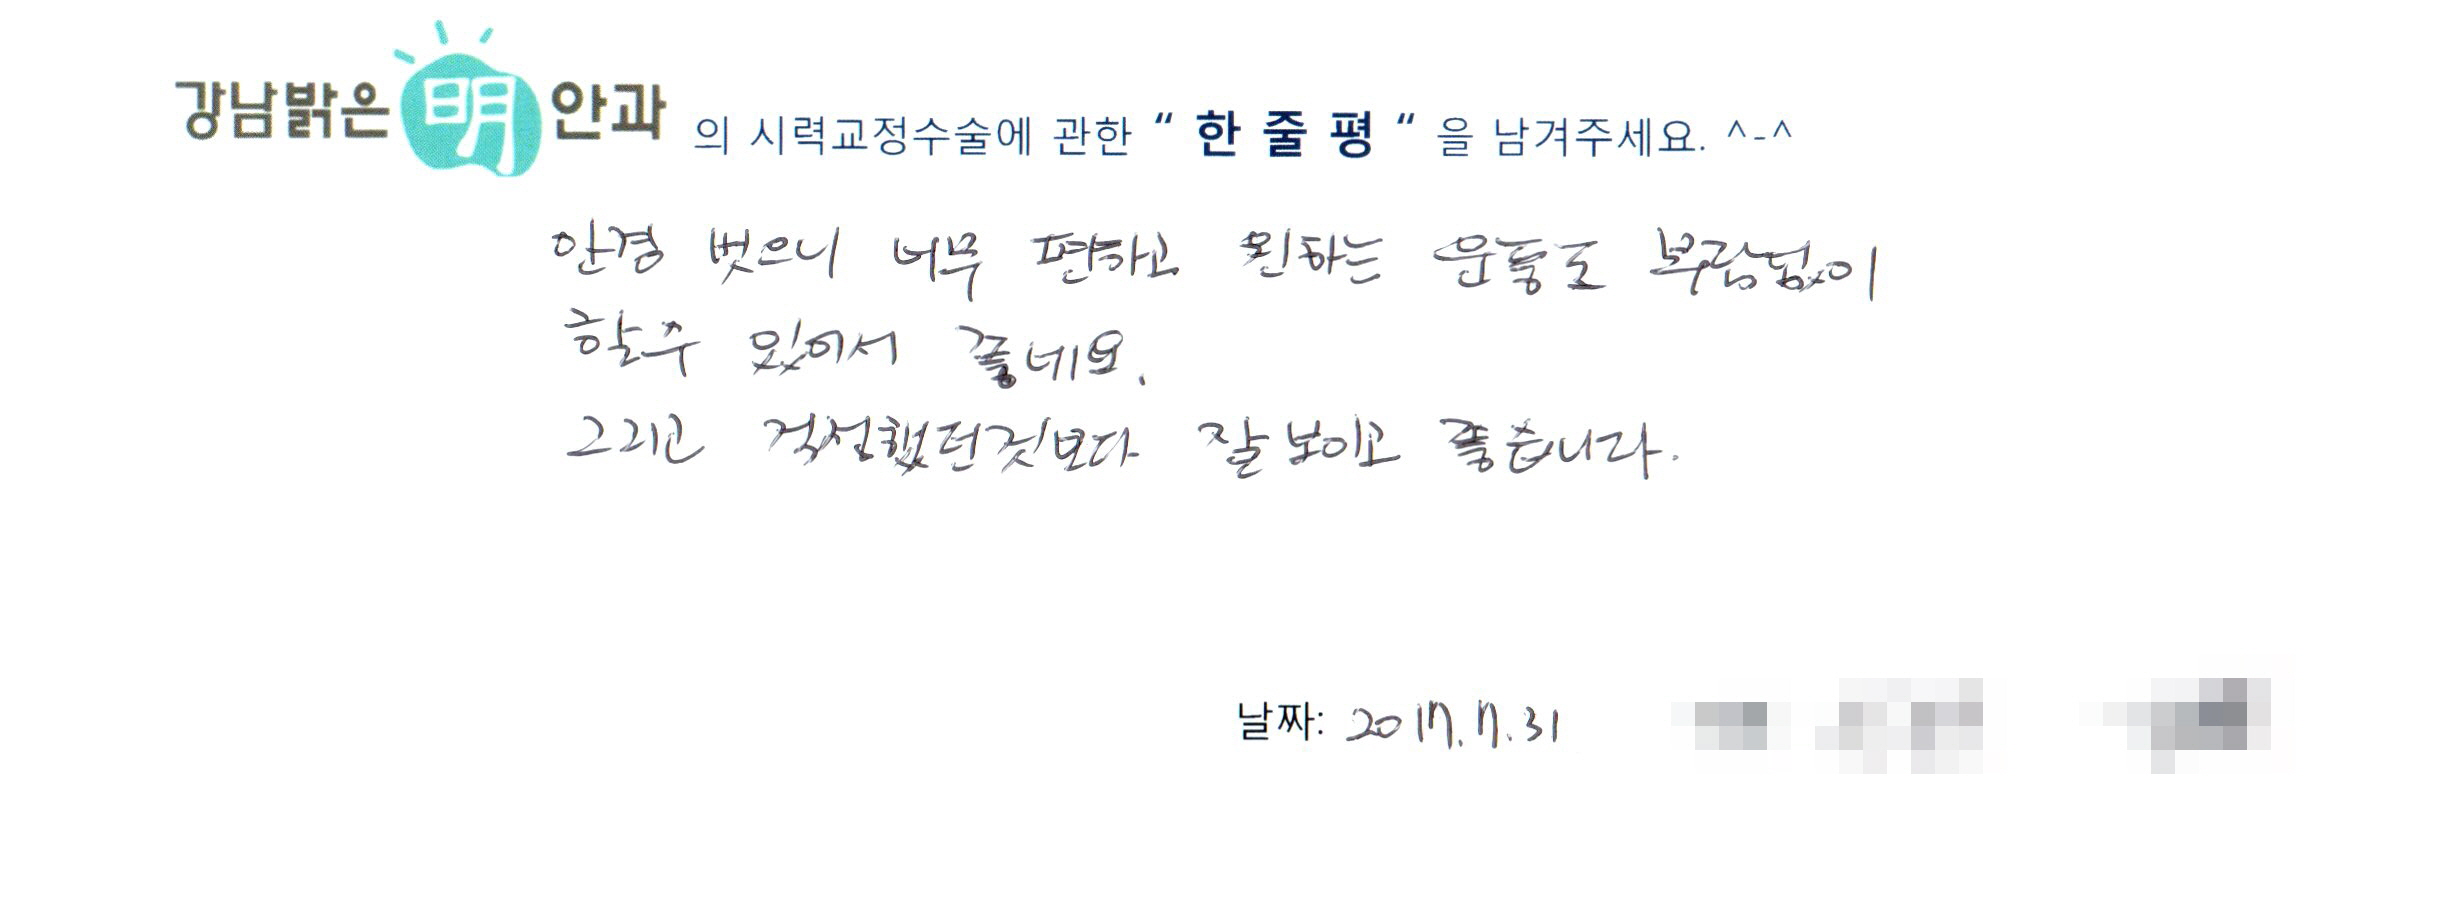 강남밝은明안과 의 시력교정수술에 관한 “ 한 줄 평 “ 을 남겨주세요. ^-^
안경 벗으니 너무 편하고 원하는 운동도 부담없이
할수 있어서 좋네요.
그리고 걱정했던것보다 잘보이고 좋습니다.
날짜: 2017.7.31